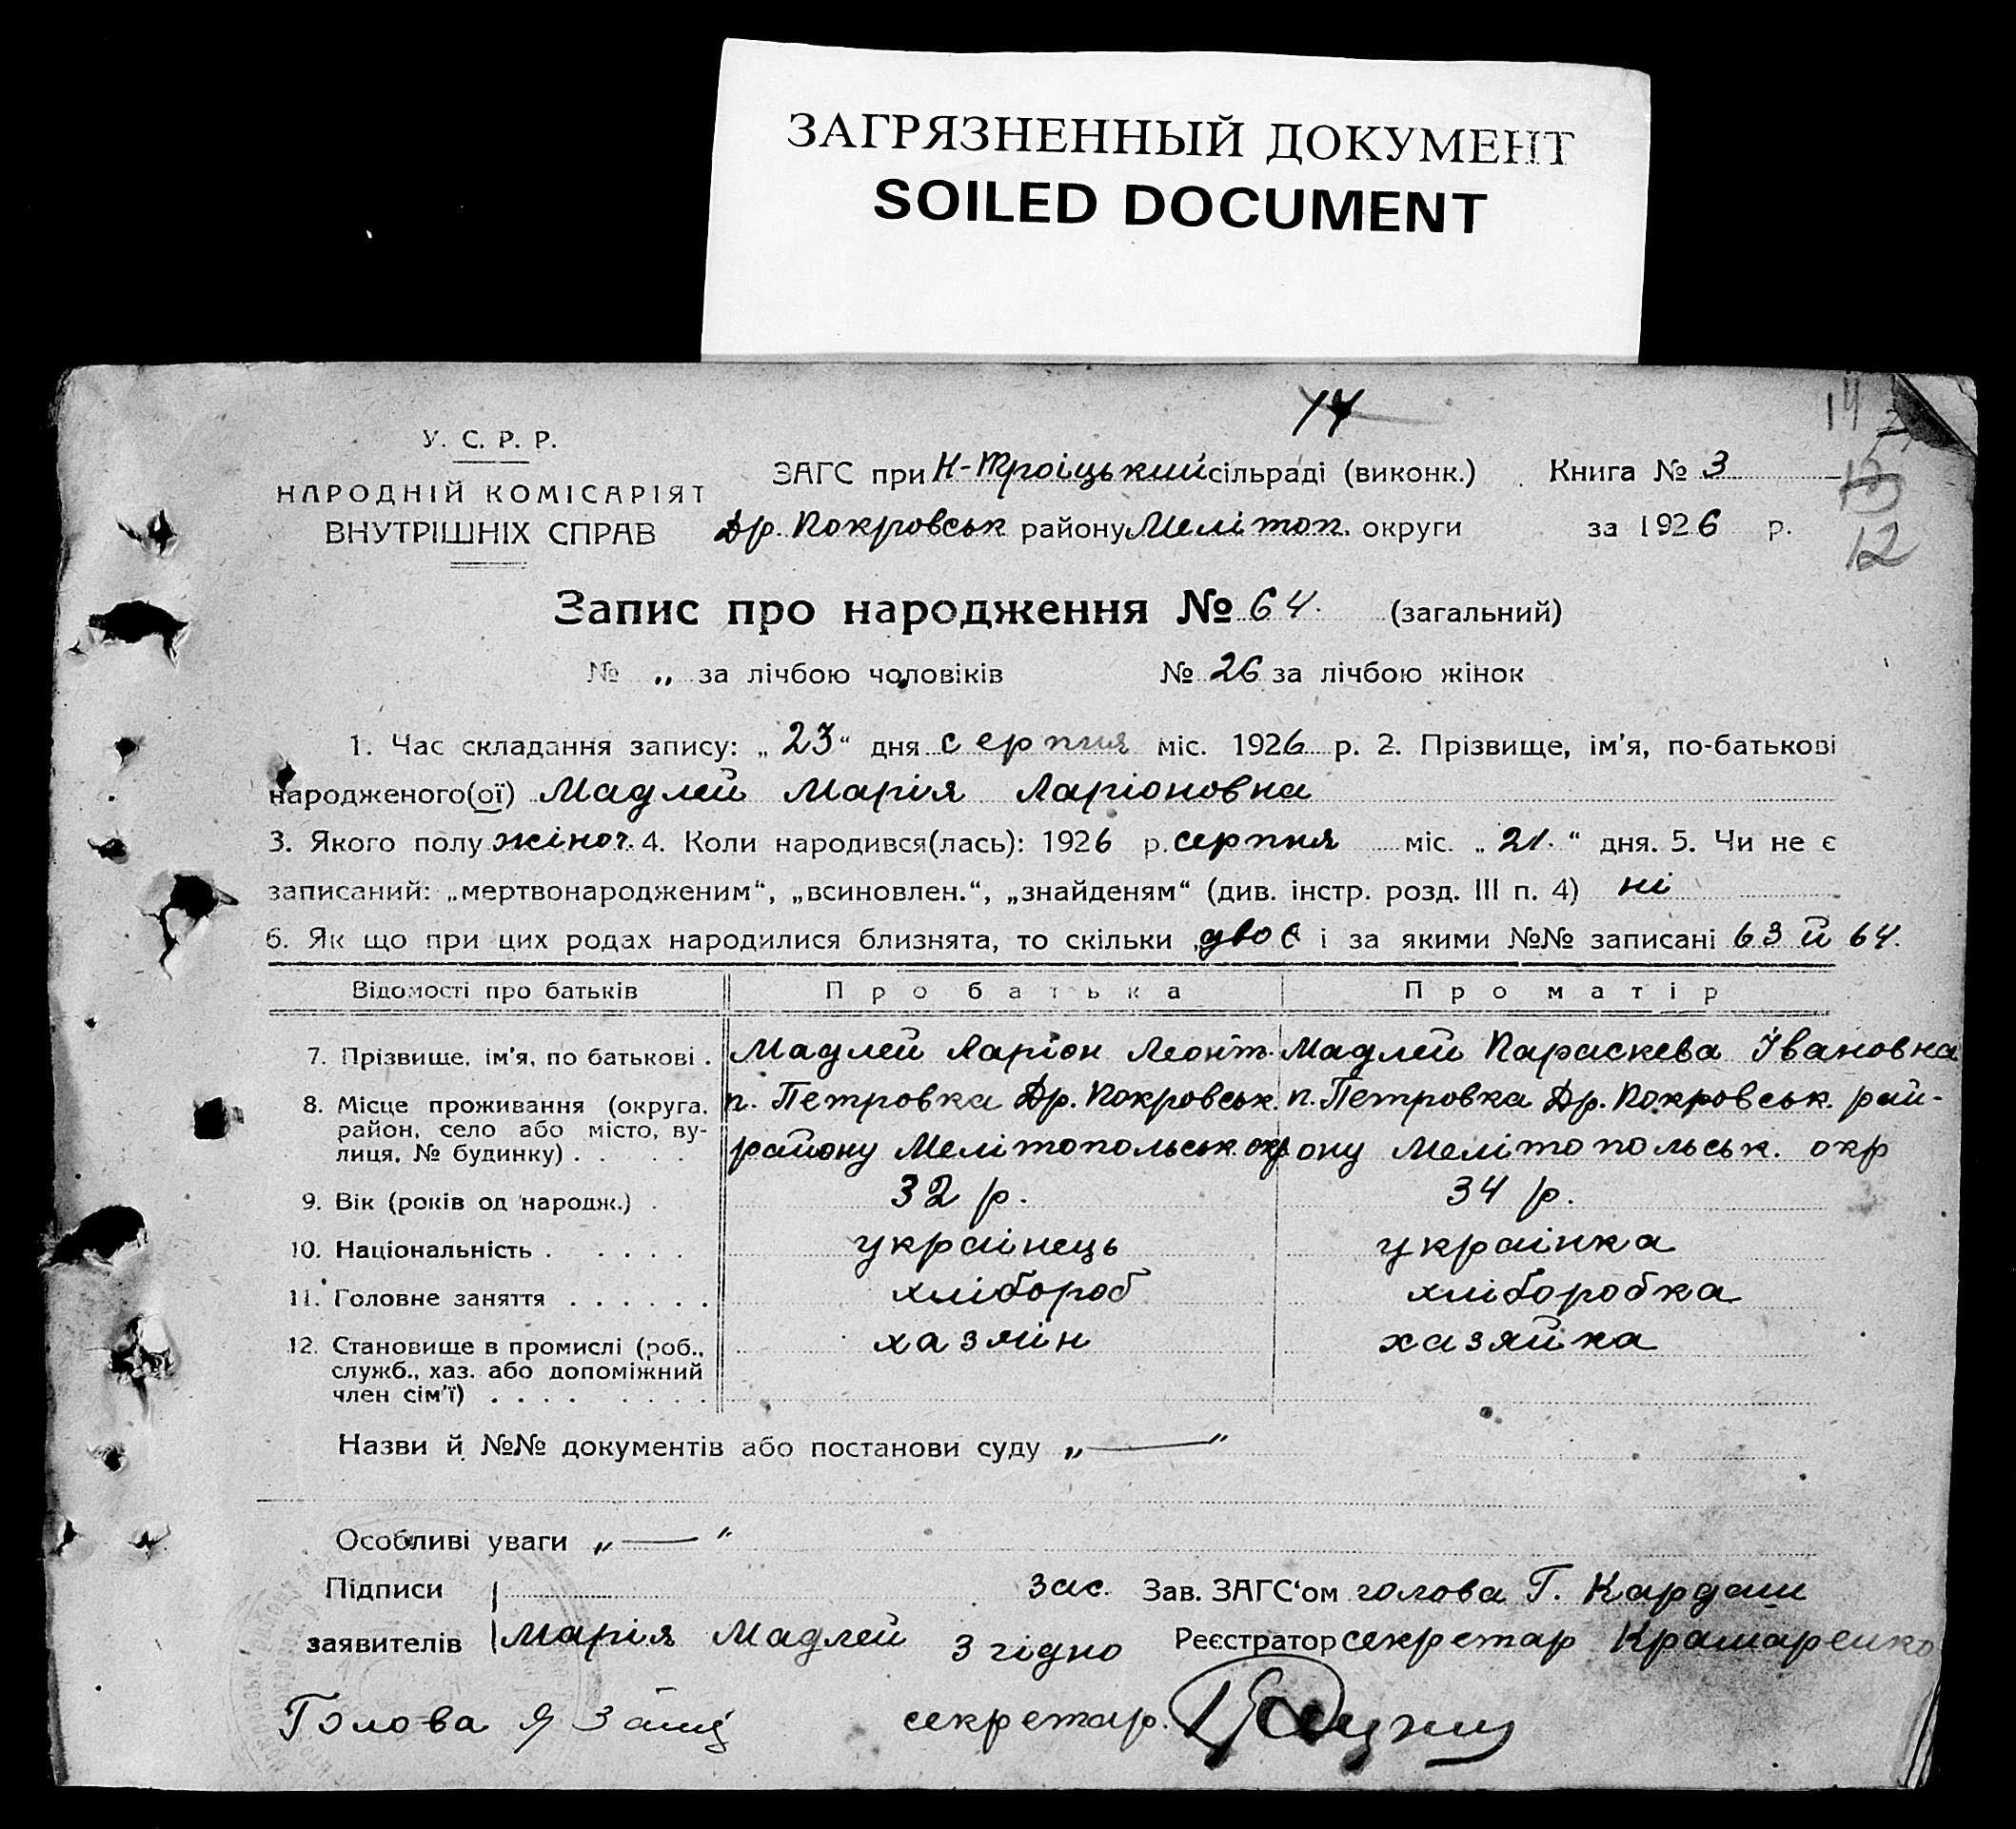 ЗАГРЯЗНЕННЫЙ ДОКУМЕНТ
SOILED DOCUMENT
14
14
У. С. Р. Р.
НАРОДНІЙ КОМІСАРІЯТ
ВНУТРІШНІХ СПРАВ
ЗАГС при Н-Троіцький сільраді (виконк.) Книга № 3
Др. Покровськ району Мелітоп. округи за 1926 р.
12
Запис про народження № 64. (загальний)
№ „ за лічбою чоловіків № 26 за лічбою жінок
1. Час складання запису: „23“ дня серпня міс. 1926 р. 2. Прізвище, ім'я, по-батькові
народженого(ої) Мадлей Марія Ларіоновна
3. Якого полу жіноч. 4. Коли народився(лась): 1926 р. серпня міс. „21.“ дня. 5. Чи не є
записаний: „мертвонародженим“, „всиновлен.“, „знайденям“ (див. інстр. розд. III п. 4) ні
6. Як що при цих родах народилися близнята, то скільки двоє і за якими №№ записані 63 й 64.
Відомості про батьків Про батька Про матір
7. Прізвище, ім'я, по батькові . Мадлей Ларіон Леонт. Мадлей Параскева Івановна
8. Місце проживання (округа, п. Петровка Др. Покровськ. п. Петровка Др. Покровськ. рай-
район, село або місто, ву-
лиця, № будинку) . . . . району Мелітопольськ. окр ону Мелітопольськ. окр
9. Вік (років од народж.) . 32 р. 34 р.
10. Національність . . . . . украінець украінка
11. Головне заняття . . . . . . хлібороб хліборобка
12. Становище в промислі (роб., хазяін хазяйка
служб., хаз. або допоміжний
член сім'ї) . . . . . . . .
Назви й №№ документів або постанови суду „—“
Особливі уваги „—“
Підписи зас. Зав. ЗАГС'ом голова Г. Кардаш
заявителів Марія Мадлей Згідно Реєстратор секретар Крамаренко
Голова секретар.